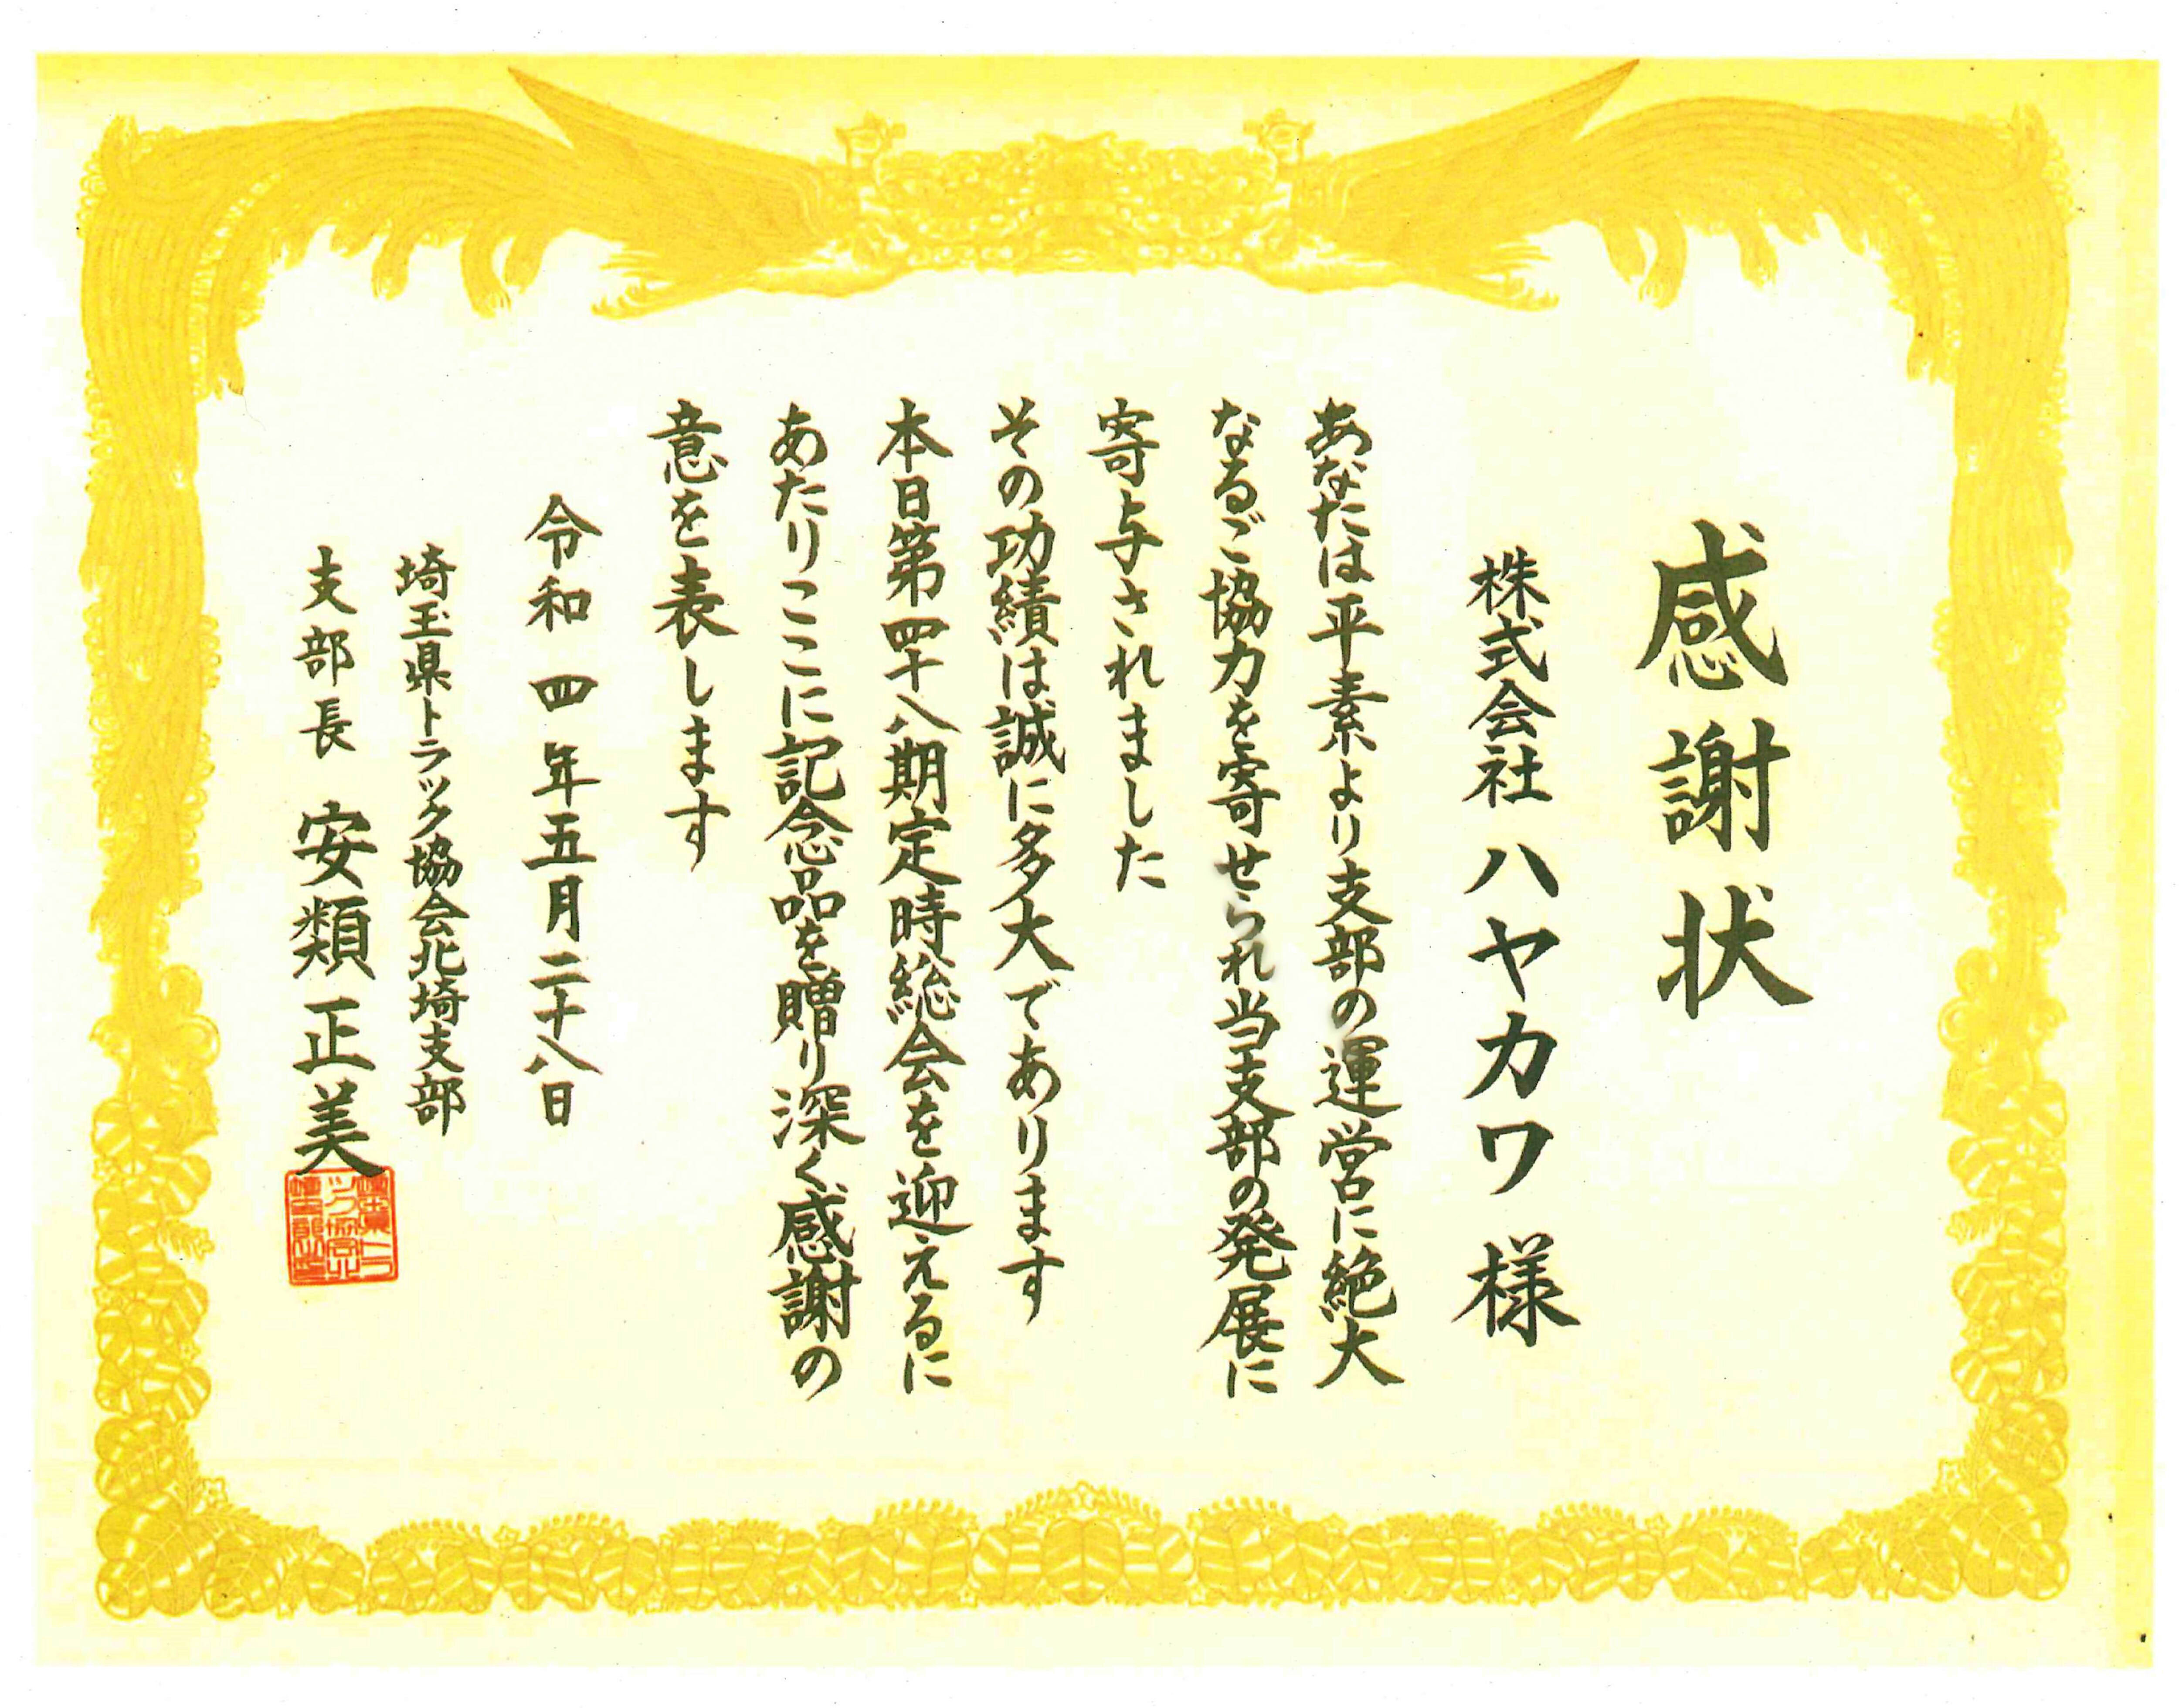 感謝状
株式会社ハヤカワ 様
あなたは平素より支部の運営に絶大
なるご協力を寄せられ当支部の発展に
寄与されました
その功績は誠に多大であります
本日第四十八期定時総会を迎えるに
あたりここに記念品を贈り深く感謝の
意を表します
令和四年五月二十八日
埼玉県トラック協会北埼支部
支部長 安類正美